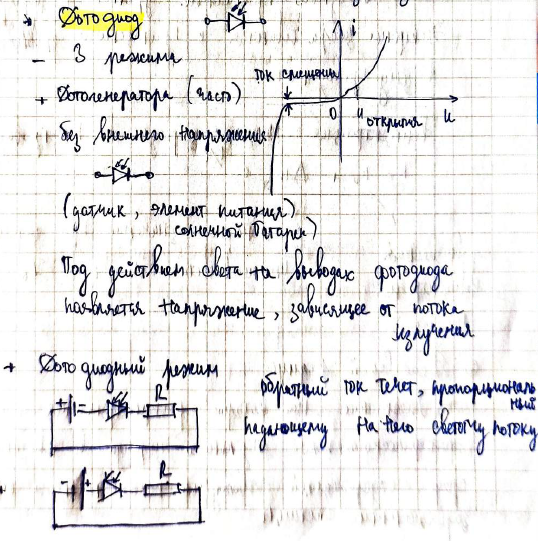 Фотодиод
i
- 3 режима
ток смещения
+ Фотогенератора (часто)
без внешнего напряжения
0 U открытия U
(датчик, элемент питания)
солнечной батареи)
Под действием света на выводах фотодиода
появляется напряжение, зависящее от потока
излучения
+ Фотодиодный режим
обратный ток течет, пропорциональ
ный
падающему на него светому потоку
+ - R
- + R